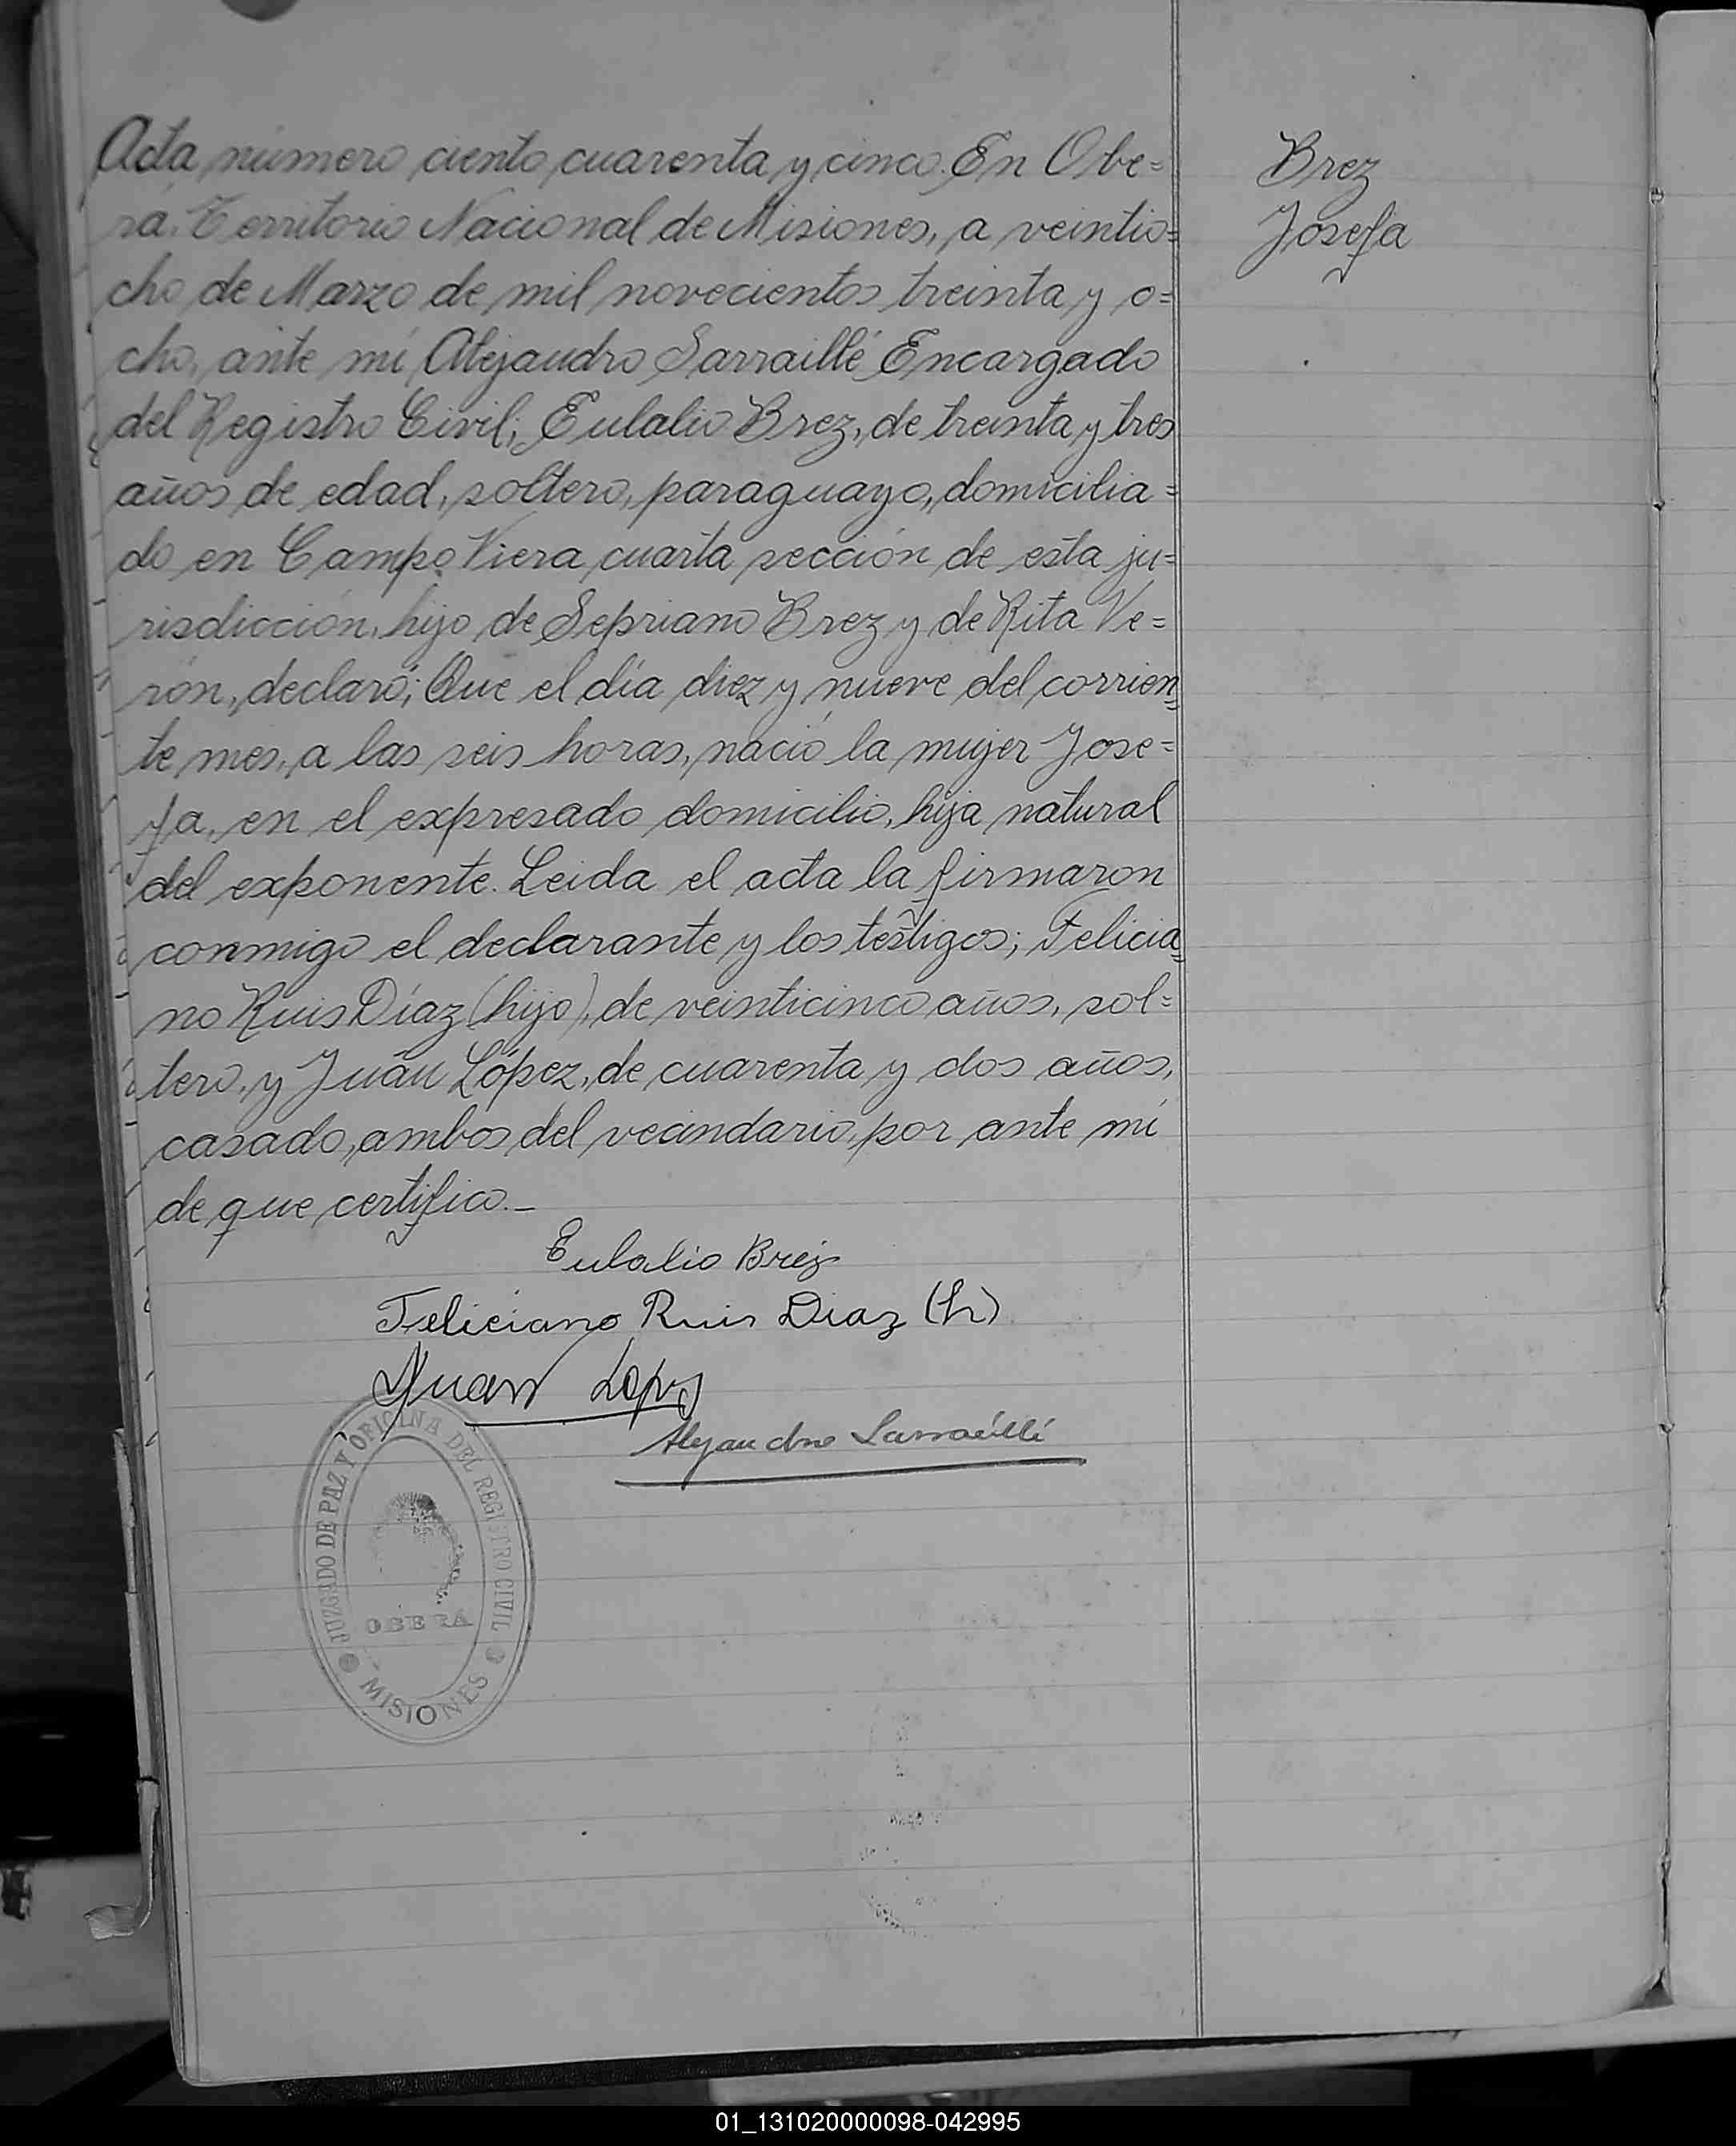 Acta número ciento cuarenta y cinco. En Obe=
rá. Territorio Nacional de Misiones, a veintio=
cho de Marzo de mil novecientos treinta y o=
cho, ante mí Alejandro Sarraillé Encargado
del Registro Civil; Eulalio Brez, de treinta y tres
años de edad, soltero, paraguayo, domicilia=
do en Campo Viera cuarta sección de esta ju=
risdicción, hijo de Sepriano Brez y de Rita Ve=
rón, declaró; Que el día diez y nueve del corrien=
te mes, a las seis horas, nació la mujer Jose=
fa, en el expresado domicilio, hija natural
del exponente. Leida el acta la firmaron
conmigo el declarante y los testigos; Felicia=
no Ruis Díaz (hijo), de veinticinco años, sol=
tero, y Juan López, de cuarenta y dos años,
casado, ambos del vecindario, por ante mí
de que certifico.-
Eulalio Brez
Feliciano Ruis Diaz (h)
Juan Lopez
Alejandro Sarraillé
JUZGADO DE PAZ Y OFICINA DEL REGISTRO CIVIL
OBERA
MISIONES
Brez
Josefa
01_131020000098-042995